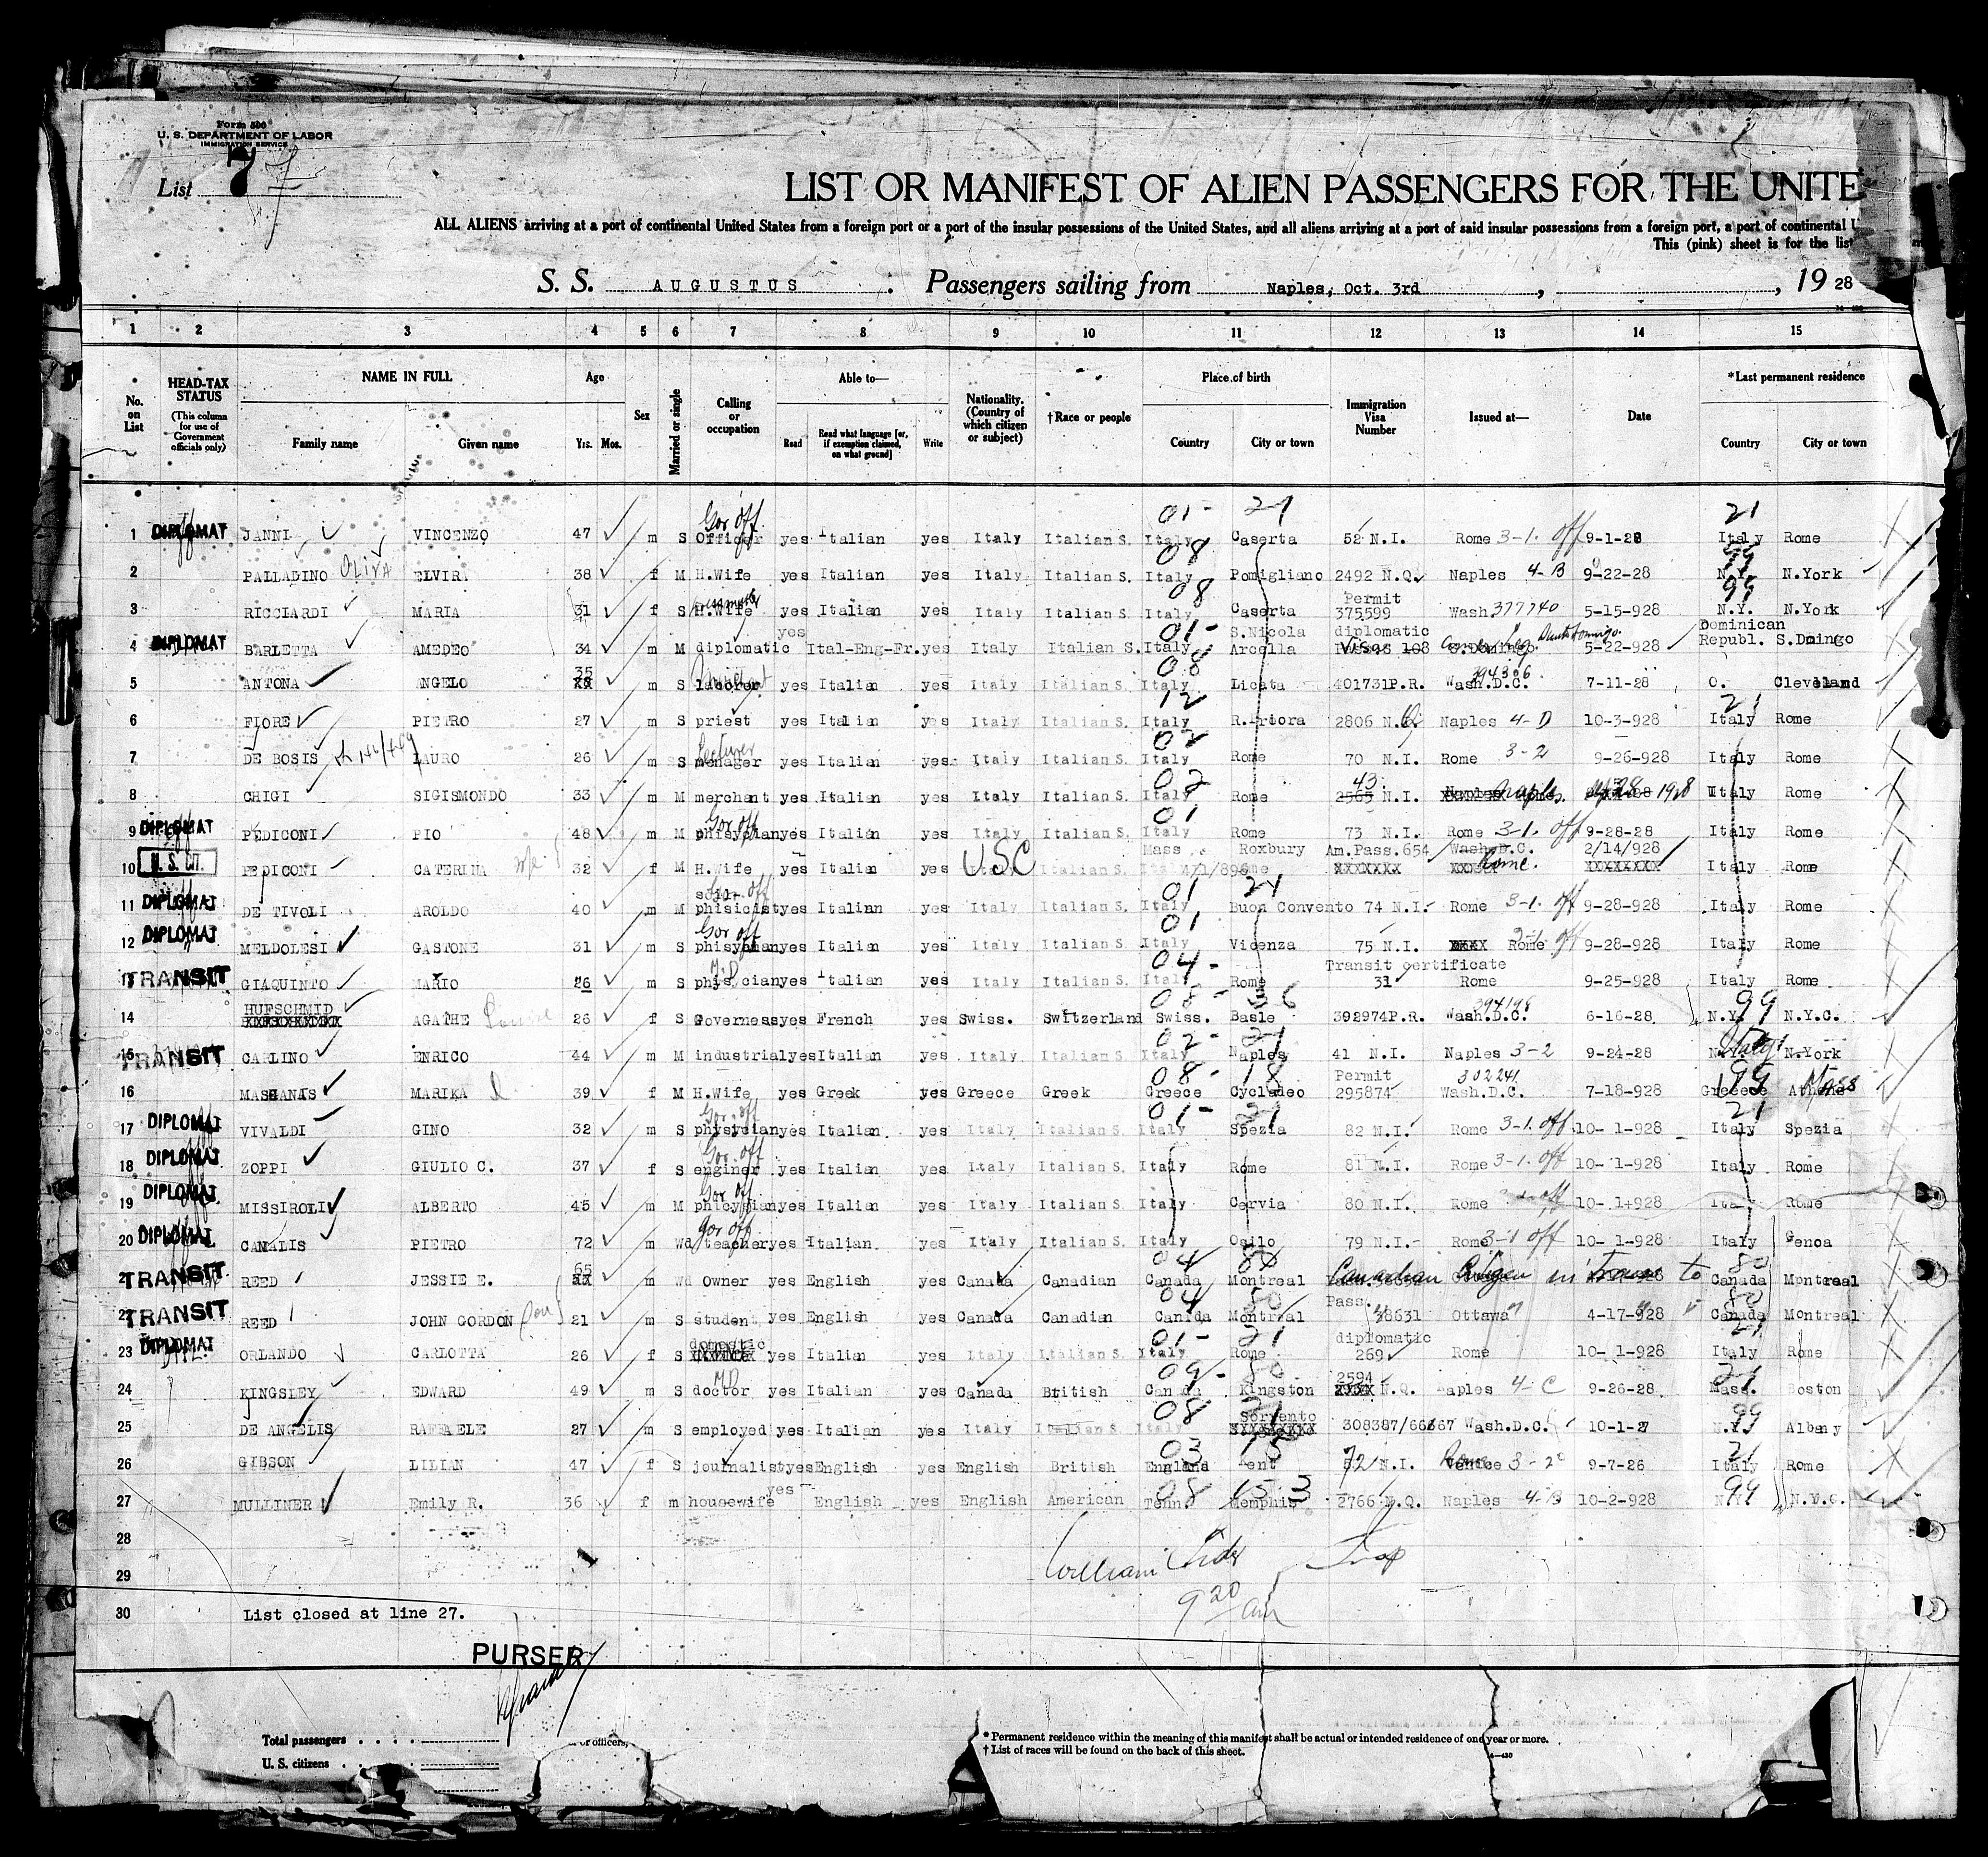 Form 500
U. S. DEPARTMENT OF LABOR
IMMIGRATION SERVICE
List 7
LIST OR MANIFEST OF ALIEN PASSENGERS FOR THE UNITE
ALL ALIENS arriving at a port of continental United States from a foreign port or a port of the insular possessions of the United States, and all aliens arriving at a port of said insular possessions from a foreign port, a port of continental U
This (pink) sheet is for the list
S. S. AUGUSTUS Passengers sailing from Naples, Oct. 3rd, , 19 28
1 2 3 4 5 6 7 8 9 10 11 12 13 14 15
No. on List
HEAD-TAX STATUS (This column for use of Government officials only)
NAME IN FULL Family name Given name
Age Yrs. Mos.
Sex
Married or single
Calling or occupation
Able to— Read Read what language [or, if exemption claimed, on what ground] Write
Nationality. (Country of which citizen or subject)
†Race or people
Place of birth Country City or town
Immigration Visa Number
Issued at—
Date
*Last permanent residence Country City or town
01- 21 21
1 DIPLOMAT JANNI VINCENZO 47 m S Officer Gov off yes Italian yes Italy Italian S. Italy Caserta 52 N.I. Rome 3-1. off 9-1-28 Italy Rome
08 99
2 PALLADINO OLIVA ELVIRA 38 f M H.Wife yes Italian yes Italy Italian S. Italy Pomigliano 2492 N.Q. Naples 4-B 9-22-28 N.Y. N.York
08 99
3 RICCIARDI MARIA 31 f S H.Wife yes Italian yes Italy Italian S. Italy Caserta Permit 375599 Wash. 377740 5-15-928 N.Y. N.York
01-
4 DIPLOMAT BARLETTA AMEDEO 34 m M diplomatic yes Ital-Eng-Fr. yes Italy Italian S. Italy S.Nicola Arcella diplomatic 108 S.Domingo 5-22-928 Dominican Republ. S.Domingo
08
5 ANTONA ANGELO 35 m S laborer yes Italian yes Italy Italian S. Italy Licata 401731P.R. Wash.D.C. 394306 7-11-28 O. Cleveland
12 21
6 FIORE PIETRO 27 m S priest yes Italian yes Italy Italian S. Italy 2806 N.Q. Naples 4-D 10-3-928 Italy Rome
02
7 DE BOSIS LAURO 26 m S menager lecturer yes Italian yes Italy Italian S. Italy Rome 70 N.I. Rome 3-2 9-26-928 Italy Rome
02
8 CHIGI SIGISMONDO 33 m M merchant yes Italian yes Italy Italian S. Italy Rome 43 2565 N.I. Naples. 1928 Italy Rome
01
9 DIPLOMAT PEDICONI PIO 48 m M phisycian Gov off yes Italian yes Italy Italian S. Italy Rome 73 N.I. Rome 3-1. off 9-28-28 Italy Rome
10 U. S. CIT. PEDICONI CATERINA 32 f M H.Wife yes Italian yes USC Italy Italian S. Mass. Roxbury 4/1/896 Am.Pass.654 XXXXXXX Wash.D.C. Rome. 2/14/928 XXXXXXXX Italy Rome
01 21
11 DIPLOMAT DE TIVOLI AROLDO 40 m M phisicist Gov off yes Italian yes Italy Italian S. Italy Buon Convento 74 N.I. Rome 3-1. off 9-28-928 Italy Rome
01
12 DIPLOMAT MELDOLESI GASTONE 31 m S phisychan Gov off yes Italian yes Italy Italian S. Italy Vicenza 75 N.I. XXXX Rome off 9-28-928 Italy Rome
04-
13 TRANSIT GIAQUINTO MARIO 26 m S phiscian M.D yes Italian yes Italy Italian S. Italy Rome Transit certificate 31 Rome 9-25-928 Italy Rome
08- 36 99
14 HUFSCHMID AGATHE Louise 26 f S governess yes French yes Swiss. Switzerland Swiss. Basle 392974P.R. Wash.D.C. 394198 6-16-28 N.Y. N.Y.C.
02- 21 Italy
15 TRANSIT CARLINO ENRICO 44 m M industrial yes Italian yes Italy Italian S. Italy Naples 41 N.I. Naples 3-2 9-24-28 N.Y. N.York
08- 18
16 MASHANIS MARIKA 39 f M H.Wife yes Greek yes Greece Greek Greece Cycladeo Permit 295874 Wash.D.C. 302241 7-18-928 Greece Athens Mass
01- 21 21
17 DIPLOMAT VIVALDI GINO 32 m S physycian Gov. off yes Italian yes Italy Italian S. Italy Spezia 82 N.I. Rome 3-1. off 10- 1-928 Italy Spezia
18 DIPLOMAT ZOPPI GIULIO C. 37 f S enginer Gov. off yes Italian yes Italy Italian S. Italy Rome 81 N.I. Rome 3-1. off 10- 1-928 Italy Rome
19 DIPLOMAT MISSIROLI ALBERTO 45 m M phicysian Gov off yes Italian yes Italy Italian S. Italy Cervia 80 N.I. Rome off 10- 1-928 Italy Rome
20 DIPLOMAT CANALIS PIETRO 72 m Wd teacher Gov off yes Italian. yes Italy Italian S. Italy Osilo 79 N.I. Rome 3-1 off 10- 1-928 Italy Genoa
04 80 80
21 TRANSIT REED JESSIE E. 65 m Wd Owner yes English yes Canada Canadian Canada Montreal Canadian Citizen in transit to Canada Montreal
04 80 80
22 TRANSIT REED JOHN GORDON 21 m S student yes English yes Canada Canadian Canada Montreal Pass. 48631 Ottawa 4-17-928 Canada Montreal
01- 21 21
23 DIPLOMAT ORLANDO CARLOTTA 26 f S domestic yes Italian yes Italy Italian S. Italy Rome diplomatic 269 Rome 10- 1-928 Italy Rome
09- 80
24 KINGSLEY EDWARD 49 m S doctor MD yes Italian yes Canada British Canada Kingston 2594 N.Q. Naples 4-C 9-26-28 Mass. Boston
08 21 99
25 DE ANGELIS RAFFAELE 27 m S employed yes Italian yes Italy Italian S. Italy Sorrento XXXXXXXXX 308387/66667 Wash.D.C. 10-1-27 N.Y. Albany
03 15 21
26 GIBSON LILIAN 47 f S journalist yes English yes English British England Kent 72 N.I. Venice Rome 3-2 9-7-26 Italy Rome
08 99
27 MULLINER Emily R. 36 f m housewife yes English yes English American Tenn. Memphis 2766 N.Q. Naples 4-B 10-2-928 N.Y. N.Y.C.
28
29 William
9 20 am
30 List closed at line 27.
PURSER
Total passengers . . . .
U. S. citizens . .
or officers,
* Permanent residence within the meaning of this manifest shall be actual or intended residence of one year or more.
† List of races will be found on the back of this sheet.